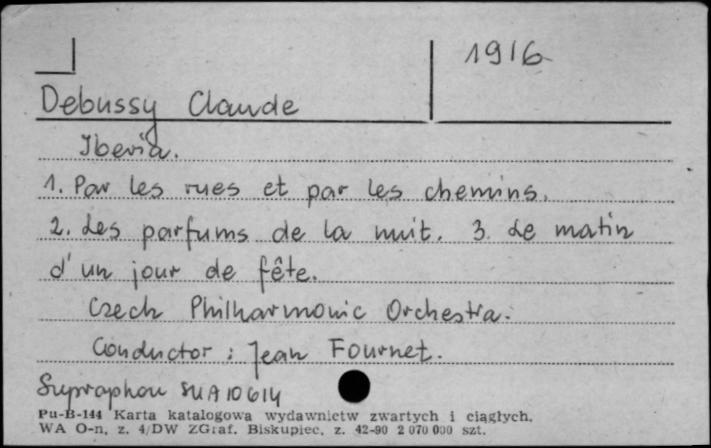 1916
Debussy Claude
Iberia.
1. Par les rues et par les chemins.
2. Les parfums de la nuit. 3. Le matin
d'un jour de fête.
Czech Philharmonic Orchestra.
Conductor : Jean Fournet.
Supraphon SUA 10614
Pu-B-144 Karta katalogowa wydawnictw zwartych i ciągłych.
WA O-n, z. 4/DW ZGraf. Biskupiec, z. 42-90 2 070 000 szt.